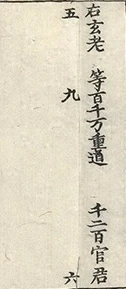 右玄老　等百千万重道　千二百官君
五　九　六